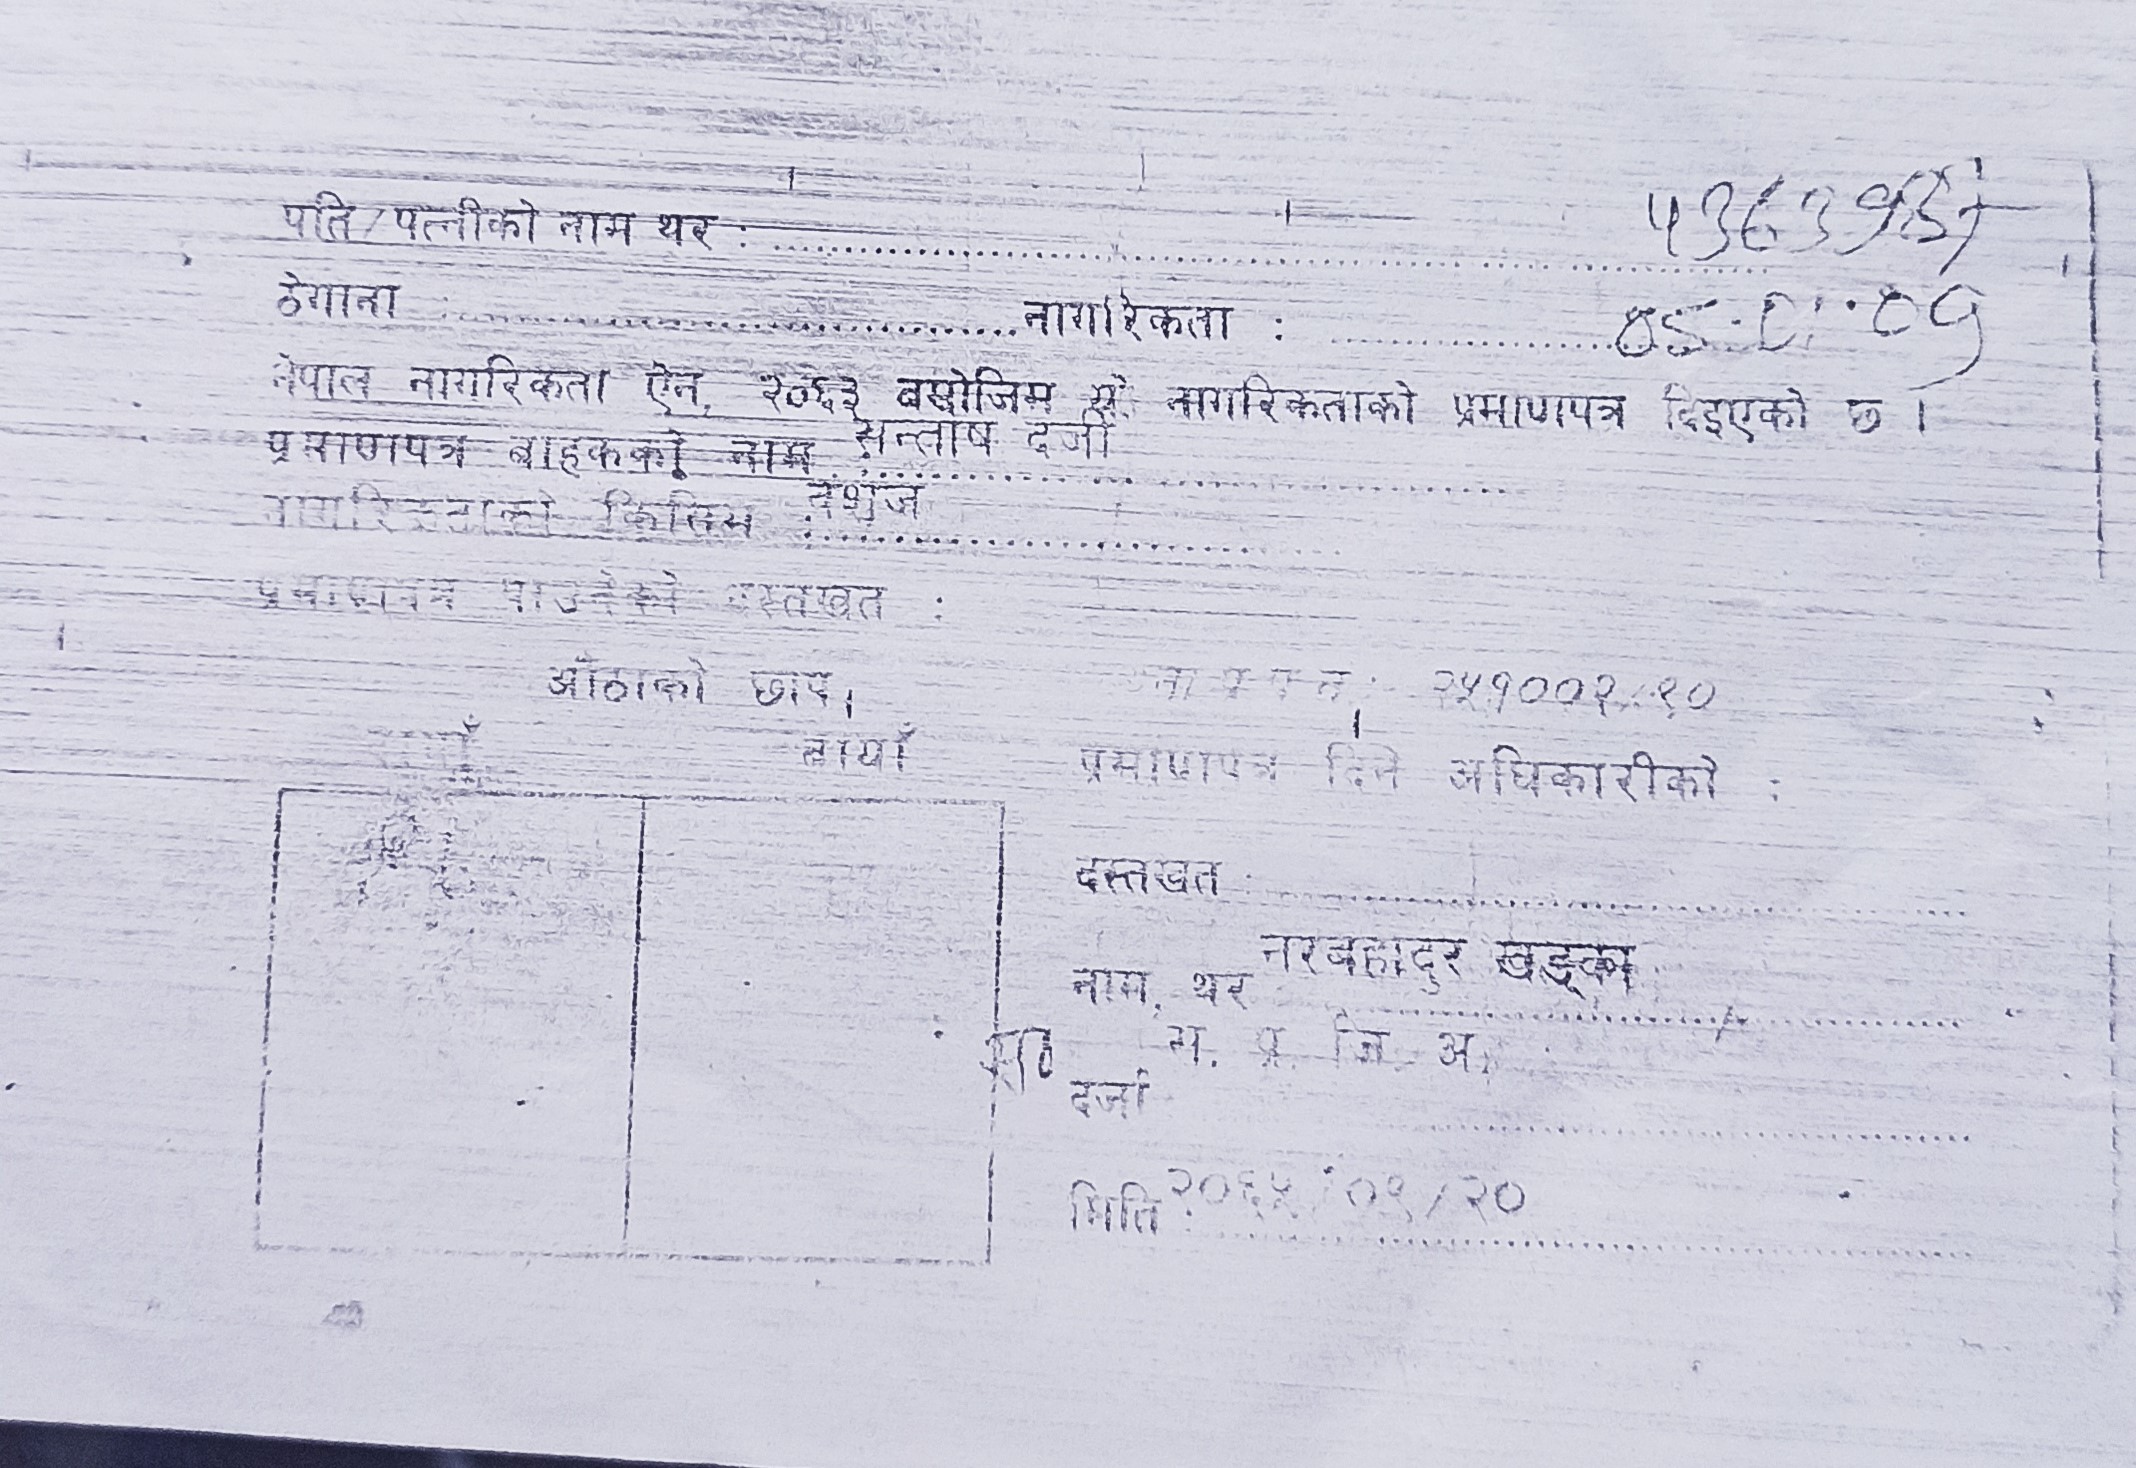 पति/पत्नीको नाम थर :
ठेगाना : नागरिकता :
नेपाल नागरिकता ऐन, २०६३ बमोजिम यो नागरिकताको प्रमाणपत्र दिइएको छ ।
प्रमाणपत्र बाहकको नाम : सन्तोष दर्जी
नागरिकताको किसिम : वंशज
प्रमाणपत्र पाउनेको दस्तखत :
औंठाको छाप
दायाँ बायाँ
ना प्र प नं : २५१००२/
प्रमाणपत्र दिने अधिकारीको :
दस्तखत :
नाम, थर नरबहादुर खड्का
दर्जा स. प्र. जि. अ.
मिति : २०६५/०९/२०